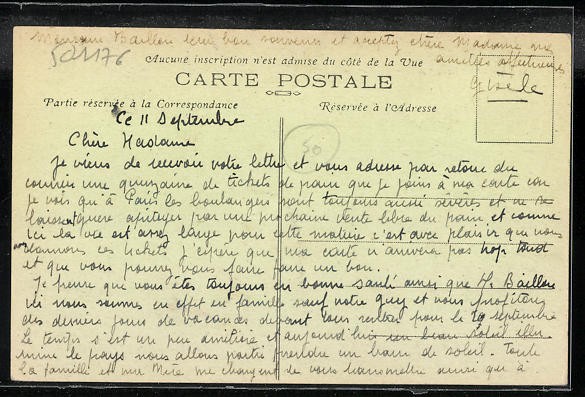 Monsieur Baillon leur bon souvenir et acceptez chère Madame mes
501176
amitiés affectueuses
Aucune inscription n'est admise du côté de la Vue
Gisèle
CARTE POSTALE
Partie réservée à la Correspondance
Réservée à l'Adresse
Ce 11 Septembre
50
Chère Madame
Je viens de recevoir votre lettre et vous adresse par retour du
courrier une quinzaine de tickets de pain que je joins à ma carte car
je vois qu'à Paris les boulangers sont toujours aussi sévères et ne se
laissent guère apitoyer par une prochaine vente libre du pain, et comme
ici la vie est assez large pour cette matière c'est avec plaisir que nous
vous donnons ces tickets j'espère que ma carte n'arrivera pas trop tard
et que vous pourrez vous faire faire un bon.
Je pense que vous êtes toujours en bonne santé ainsi que M. Baillon
ici nous sommes en effet en famille sauf notre Guy et vous profitez
des derniers jours de vacances devant tous rentrer pour le 29 septembre
Le temps s'est un peu amélioré et aujourd'hui un beau soleil illu-
mine le pays nous allons partir prendre un bain de soleil. Toute
la famille et ma Mère me chargent de vous transmettre ainsi qu'à